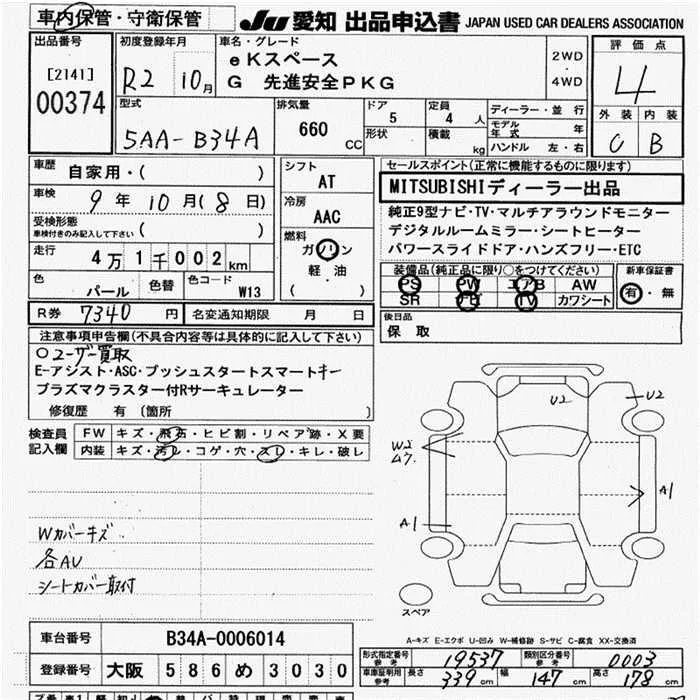 車内保管・守衛保管
JU 愛知 出品申込書 JAPAN USED CAR DEALERS ASSOCIATION
出品番号
[2141]
00374
初度登録年月
R2 10月
車名・グレード
eKスペース
G 先進安全PKG
2WD
・
4WD
評価点
4
外装 内装
C B
型式
5AA-B34A
排気量
660 cc
ドア
5
形状
定員
4 人
積載
kg
ディーラー・並行
モデル年式 年
ハンドル 左・右
車歴
自家用・( )
車検
9年10月(8日)
受検形態
車検付きのみ記入して下さい ( )
走行
4万1千002km
色
パール
色替
色コード
W13
シフト
AT
冷房
AAC
燃料
ガソリン
軽油
( )
セールスポイント(正常に機能するものに限ります)
MITSUBISHIディーラー出品
純正9型ナビ・TV・マルチアラウンドモニター
デジタルルームミラー・シートヒーター
パワースライドドア・ハンズフリー・ETC
装備品(純正品に限り○をつけてください)
PS PW エアB AW
SR ナビ TV カワシート
新車保証書
有・無
R券 7340円
名変通知期限 月 日
後日品
保取
注意事項申告欄(不具合内容等は具体的に記入して下さい)
○ユーザー買取
E-アシスト・ASC・プッシュスタートスマートキー
プラズマクラスター付Rサーキュレーター
修復歴 有 (箇所 )
検査員
記入欄
FW キズ・飛石・ヒビ割・リペア跡・X要
内装 キズ・汚レ・コゲ・穴・スレ・キレ・破レ
Wカバーキズ
各AU
シートカバー取付
U2
U2
W2
ムラ
A1
A1
スペア
A-キズ E-エクボ U-凹み W-補修跡 S-サビ C-腐食 XX-交換済
車台番号
B34A-0006014
登録番号
大阪 586 め 3030
形式指定番号
参考
19537
類別区分番号
参考
0003
車庫証明用
参考
長さ 339cm 幅 147cm 高さ 178cm